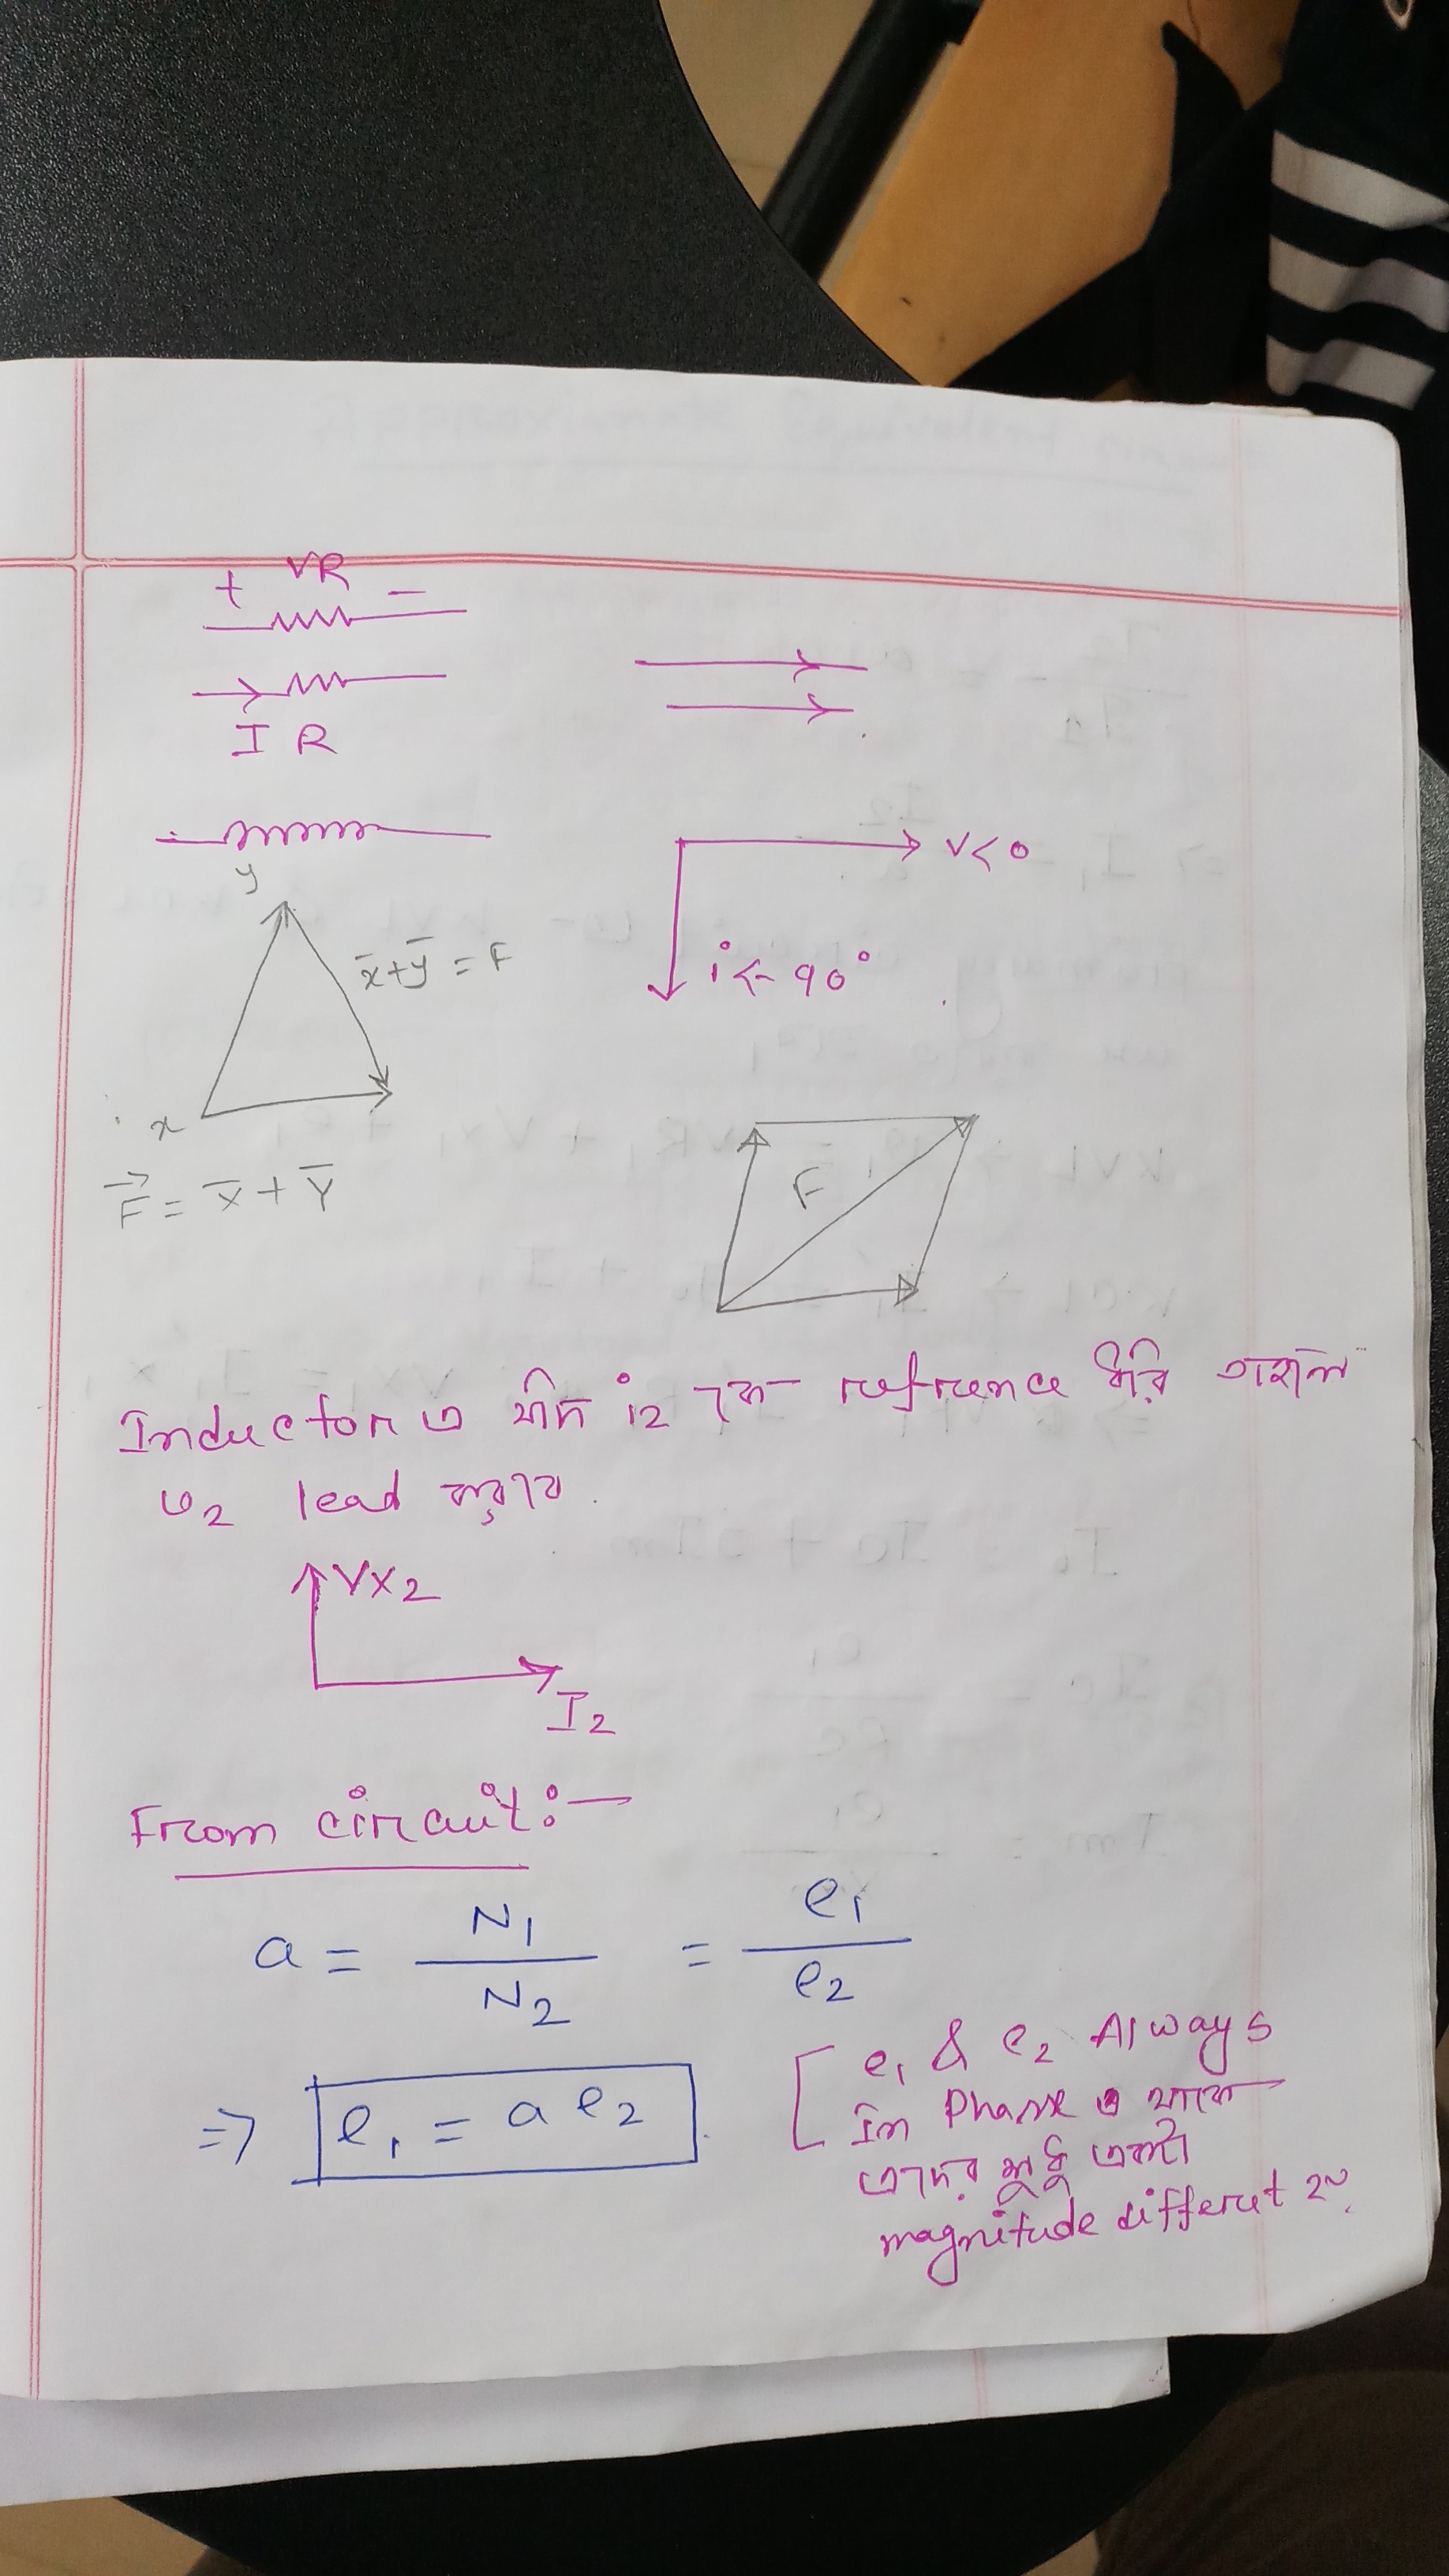 + VR -
I R
V<0
i<-90°
y
x̄+ȳ = F
x
F⃗ = x̄ + Ȳ
F
Inductor এ যদি i2 কে refrence ধরি তাহলে
v2 lead করবে
VX2
I2
From circuit:—
a = N1/N2 = e1/e2
⇒ e1 = a e2
[e1 & e2 Always
In Phase এ থাকে
এদের শুধু একটা
magnitude differet হয়